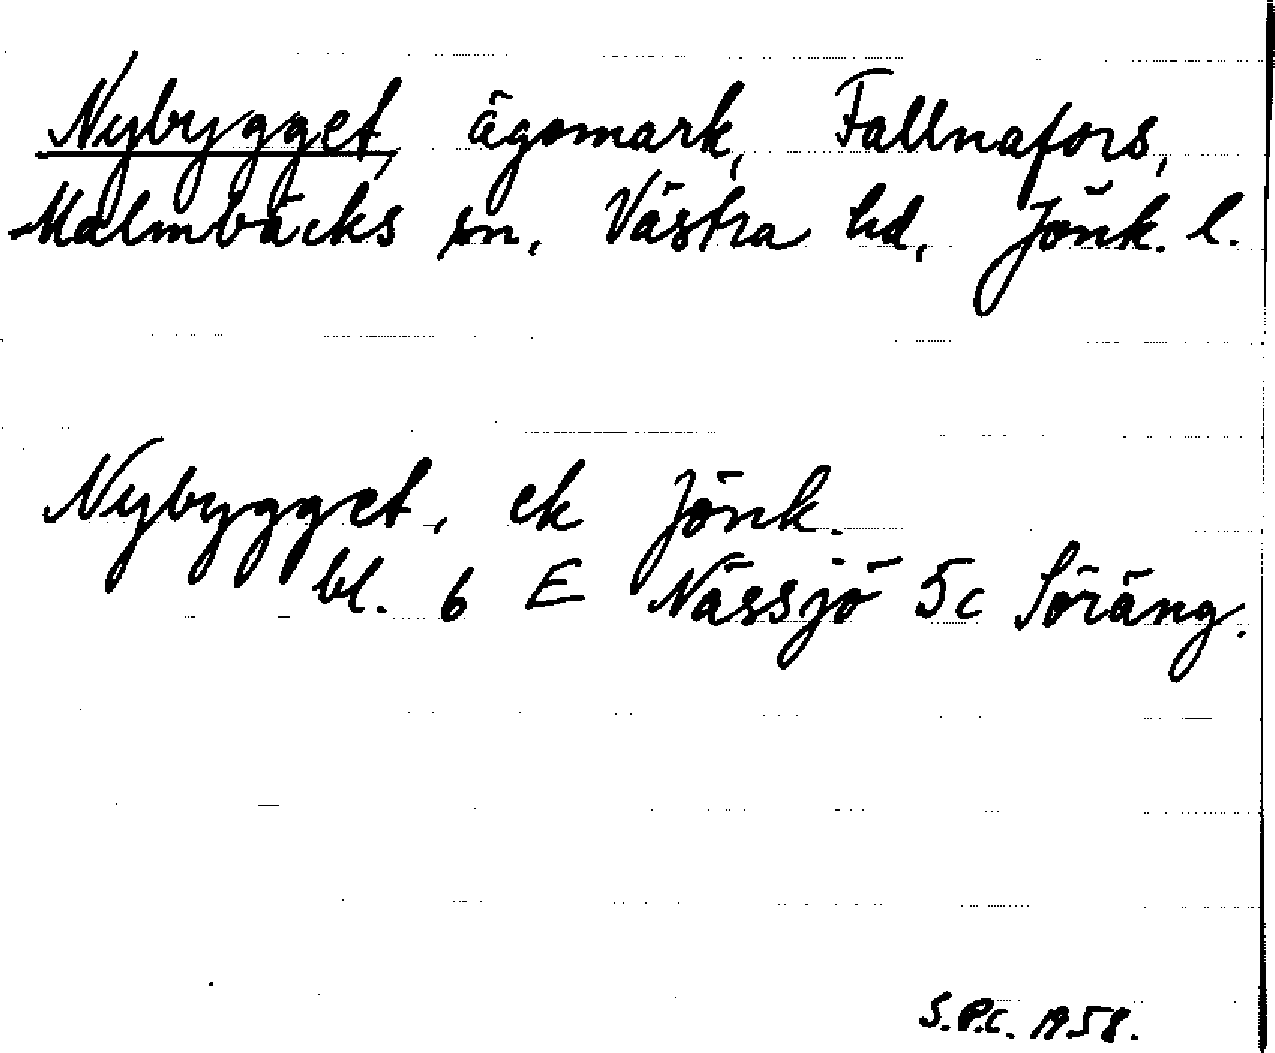 Nybygget, ägomark, Fallnafors,
Malmbäcks sn, Västra hd, Jönk. l.
Nybygget, ek Jönk.
bl. 6 E Nässjö 5c Söräng.
S.P.C. 1958.